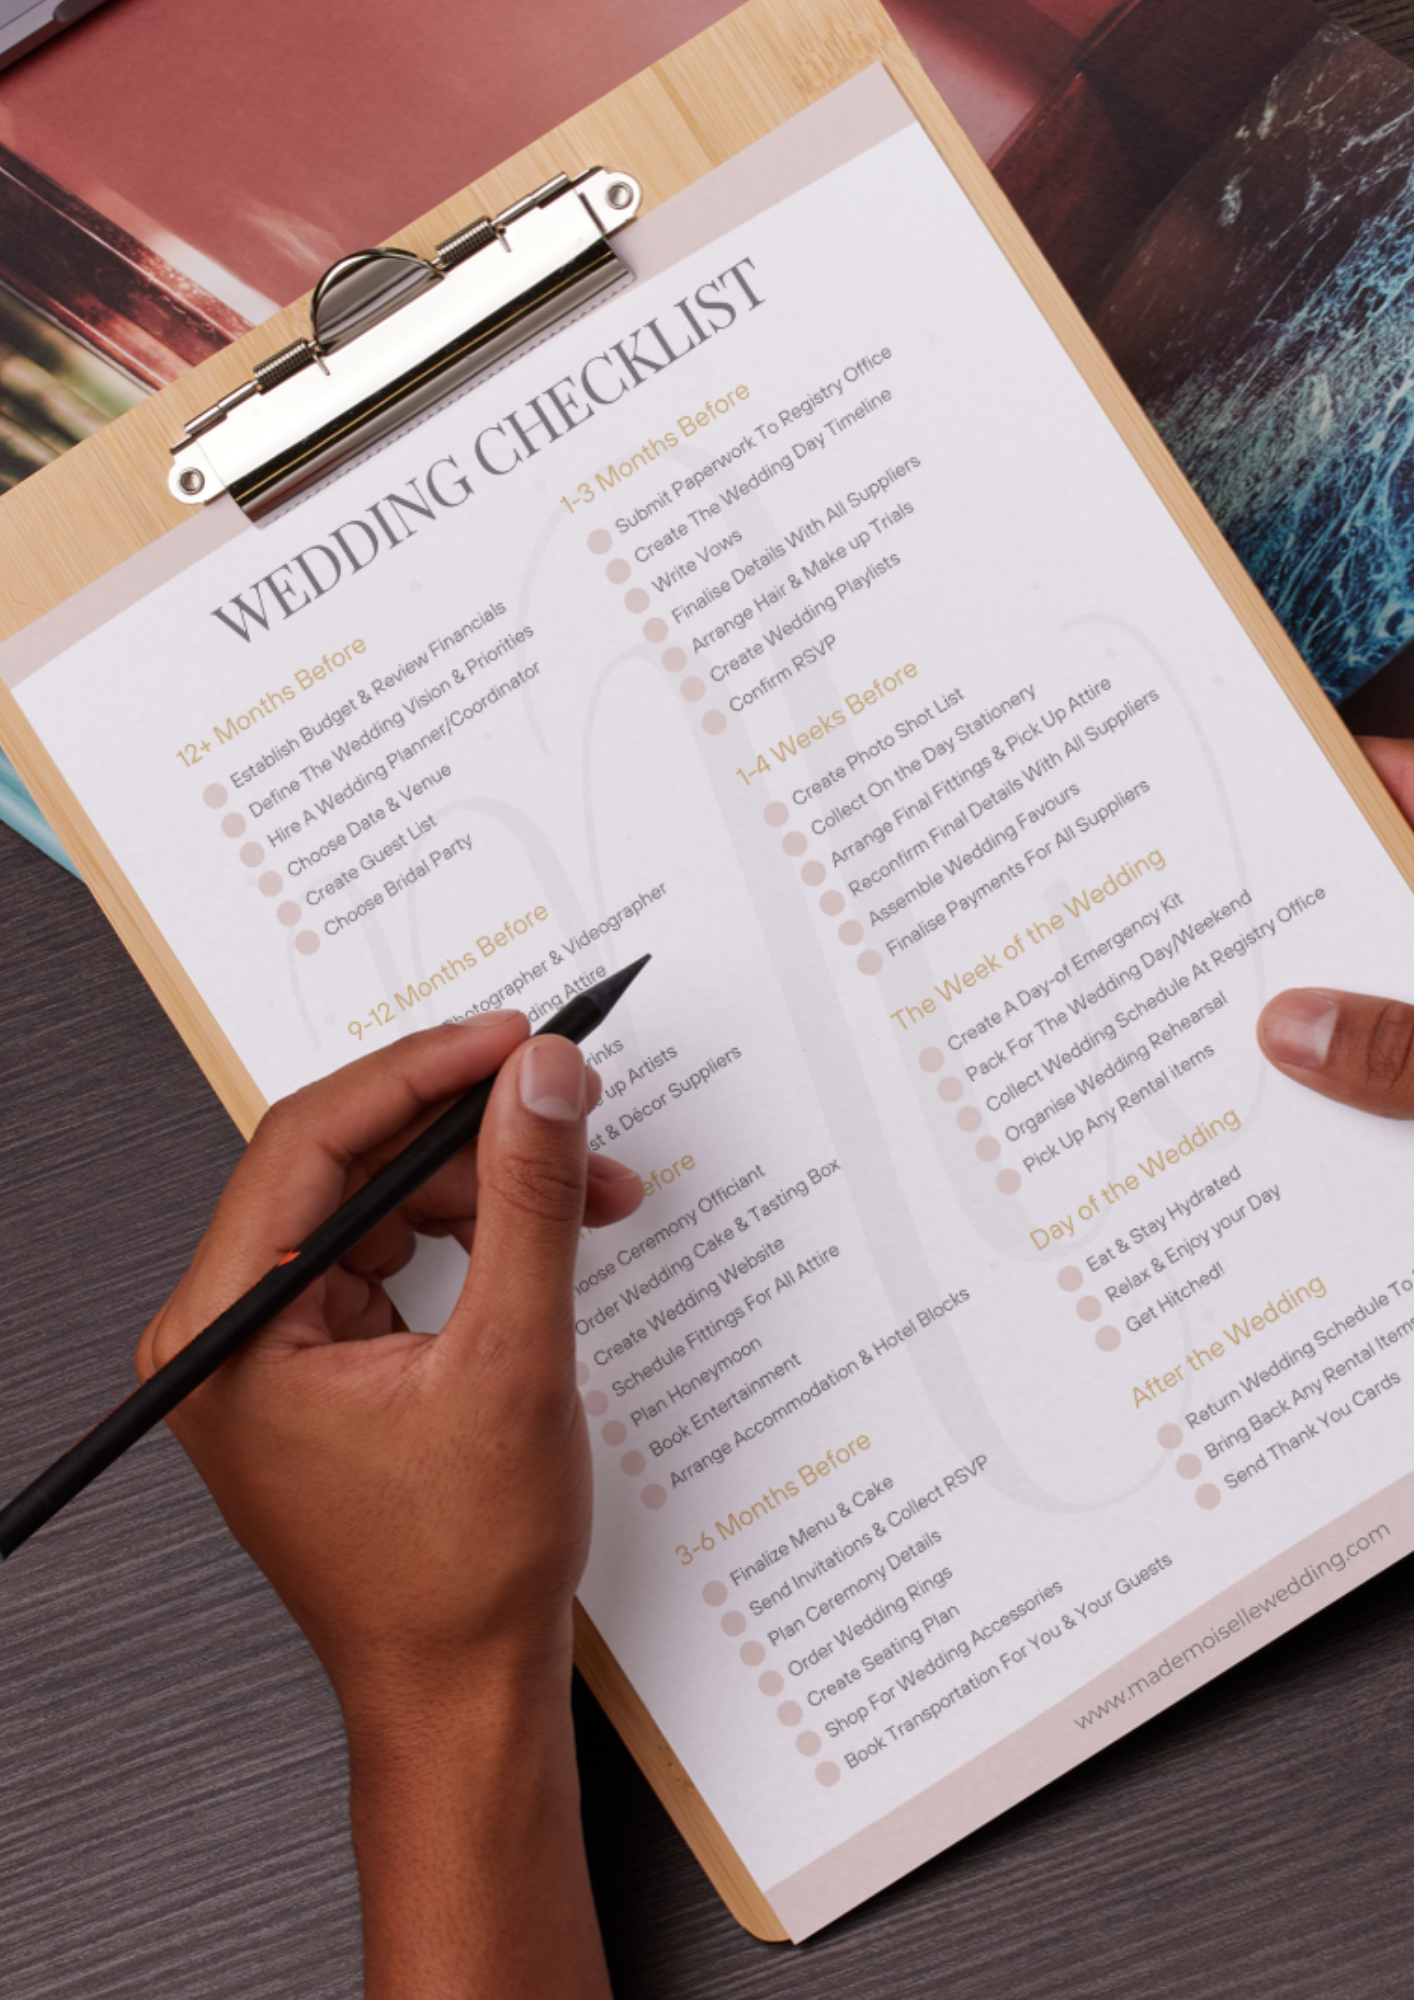 WEDDING CHECKLIST
12+ Months Before
Establish Budget & Review Financials
Define The Wedding Vision & Priorities
Hire A Wedding Planner/Coordinator
Choose Date & Venue
Create Guest List
Choose Bridal Party
9-12 Months Before
Photographer & Videographer
Attire
up Artists
& Décor Suppliers
Ceremony Officiant
Order Wedding Cake & Tasting Box
Create Wedding Website
Schedule Fittings For All Attire
Plan Honeymoon
Book Entertainment
Arrange Accommodation & Hotel Blocks
3-6 Months Before
Finalize Menu & Cake
Send Invitations & Collect RSVP
Plan Ceremony Details
Order Wedding Rings
Create Seating Plan
Shop For Wedding Accessories
Book Transportation For You & Your Guests
1-3 Months Before
Submit Paperwork To Registry Office
Create The Wedding Day Timeline
Write Vows
Finalise Details With All Suppliers
Arrange Hair & Make up Trials
Create Wedding Playlists
Confirm RSVP
1-4 Weeks Before
Create Photo Shot List
Collect On the Day Stationery
Arrange Final Fittings & Pick Up Attire
Reconfirm Final Details With All Suppliers
Assemble Wedding Favours
Finalise Payments For All Suppliers
The Week of the Wedding
Create A Day-of Emergency Kit
Pack For The Wedding Day/Weekend
Collect Wedding Schedule At Registry Office
Organise Wedding Rehearsal
Pick Up Any Rental items
Day of the Wedding
Eat & Stay Hydrated
Relax & Enjoy your Day
Get Hitched!
After the Wedding
Return Wedding Schedule To
Bring Back Any Rental Items
Send Thank You Cards
www.mademoisellewedding.com